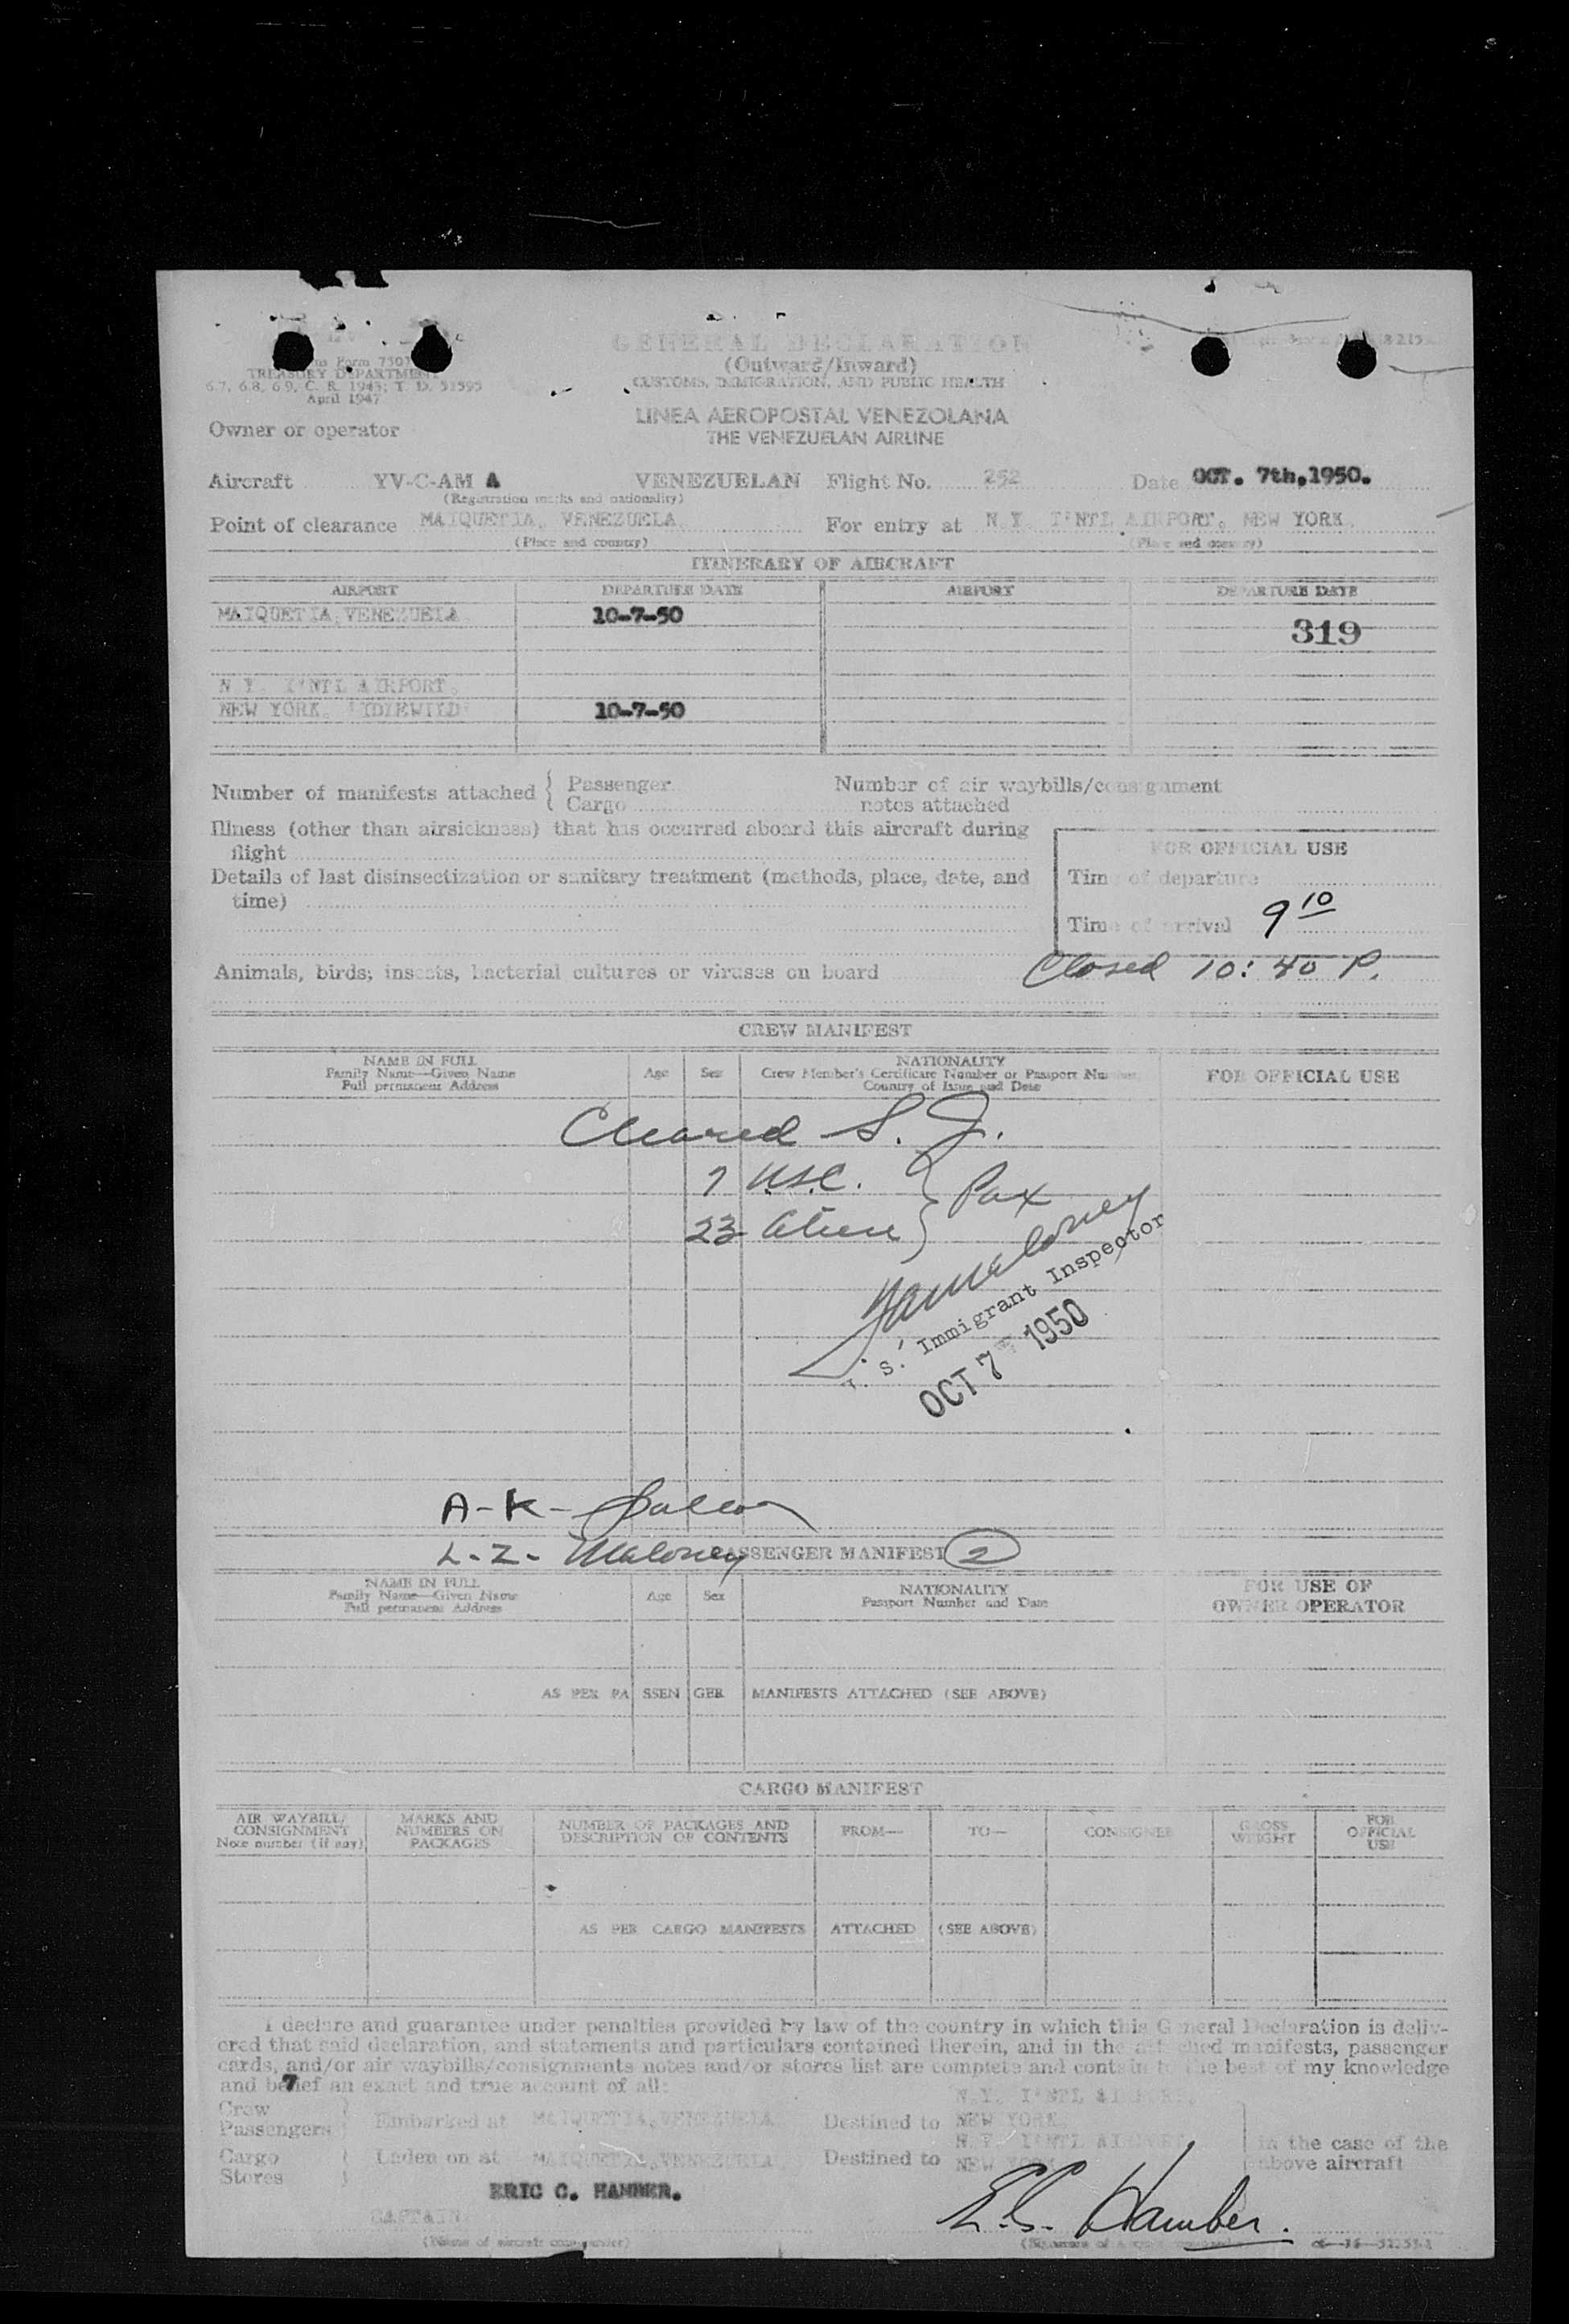 GENERAL DECLARATION
(Outward/Inward)
CUSTOMS, IMMIGRATION, AND PUBLIC HEALTH
Form 7507
TREASURY DEPARTMENT
6.7, 6.8, 6.9, C. R. 1943; T. D. 51595
April 1947
LINEA AEROPOSTAL VENEZOLANA
THE VENEZUELAN AIRLINE
Owner or operator
Aircraft YV-C-AM A VENEZUELAN Flight No. 252 Date OCT. 7th,1950.
(Registration marks and nationality)
Point of clearance MAIQUETIA, VENEZUELA For entry at N.Y. I'NTL AIRPORT, NEW YORK.
(Place and country) (Place and country)
ITINERARY OF AIRCRAFT
AIRPORT DEPARTURE DATE AIRPORT DEPARTURE DATE
MAIQUETIA, VENEZUELA 10-7-50
319
N.Y. I'NTL AIRPORT,
NEW YORK. IDLEWILD 10-7-50
Number of manifests attached { Passenger Number of air waybills/consignment
Cargo notes attached
Illness (other than airsickness) that has occurred aboard this aircraft during
flight
FOR OFFICIAL USE
Details of last disinsectization or sanitary treatment (methods, place, date, and
time)
Time of departure
Time of arrival 9 10
Closed 10:40 P.
Animals, birds, insects, bacterial cultures or viruses on board
CREW MANIFEST
NAME IN FULL Age Sex NATIONALITY FOR OFFICIAL USE
Family Name—Given Name Crew Member's Certificate Number or Passport Number
Full permanent Address Country of Issue and Date
Cleared S. J.
7 USC. } Pax
23 Alien
S. Immigrant Inspector
OCT 7 1950
A-K-
L-Z- Maloney
PASSENGER MANIFEST 2
NAME IN FULL Age Sex NATIONALITY FOR USE OF
Family Name—Given Name Passport Number and Date OWNER OPERATOR
Full permanent Address
AS PER PASSENGER MANIFESTS ATTACHED (SEE ABOVE)
CARGO MANIFEST
AIR WAYBILL/ MARKS AND NUMBER OF PACKAGES AND FROM— TO— CONSIGNEE GROSS FOR
CONSIGNMENT NUMBERS ON DESCRIPTION OF CONTENTS WEIGHT OFFICIAL
Note number (if any) PACKAGES USE
AS PER CARGO MANIFESTS ATTACHED (SEE ABOVE)
I declare and guarantee under penalties provided by law of the country in which this General Declaration is deliv-
ered that said declaration, and statements and particulars contained therein, and in the attached manifests, passenger
cards, and/or air waybills/consignments notes and/or stores list are complete and contain to the best of my knowledge
and belief an exact and true account of all:
7
N.Y. I'NTL AIRPORT,
Crew
Passengers Embarked at MAIQUETIA, VENEZUELA Destined to NEW YORK.
N.Y. I'NTL AIRPORT, in the case of the
Cargo Laden on at MAIQUETIA, VENEZUELA Destined to NEW YORK above aircraft
Stores
ERIC C. HAMBER.
CAPTAIN
E.C. Hamber.
(Name of aircraft commander)